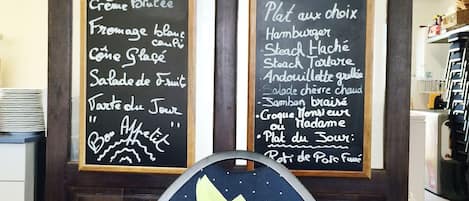 Crème Brulée
Fromage blanc
Cône Glaçé
Salade de Fruits
Tarte du Jour
"Bon Appétit"
Plat aux choix
Hamburger
Steack Haché
Steack Tartare
Andouillette grillée
Salade chèvre chaud
Jambon braisé
Croque Monsieur
ou Madame
Plat du Jour:
Roti de Porc Fumé